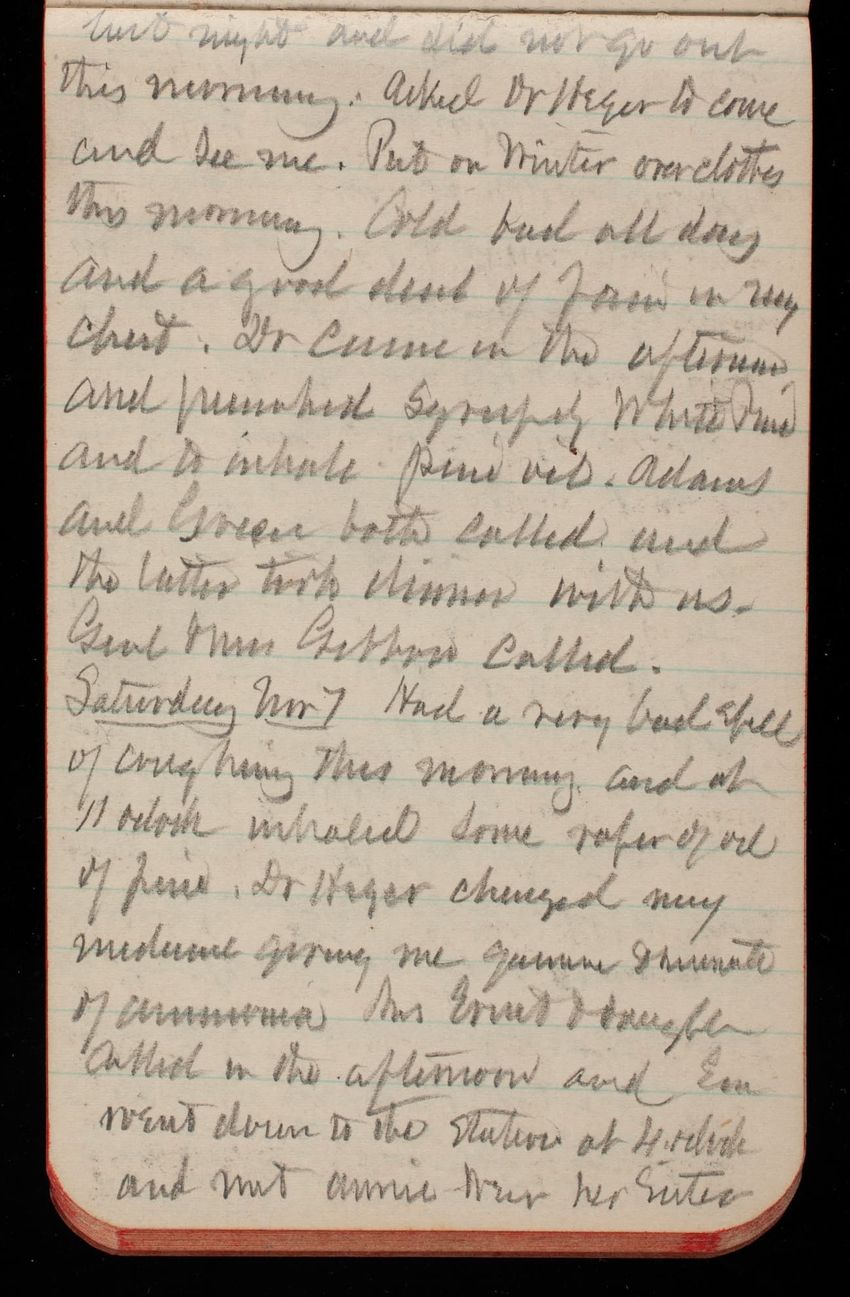 last night and did not go out
this morning. Asked Dr Heger to come
and see me. Put on Winter overclothes
this morning. Cold bad all day
and a good deal of pain in my
chest. Dr came in the afternoon
and prescribed Syrup of White Pine
and to inhale pine oil. Adams
and Green both called and
the latter took dinner with us.
Genl & Mrs Gibbon called.
Saturday Nov 7 Had a very bad spell
of coughing this morning and at
11 oclock inhaled some vapor of oil
of pine. Dr Heger changed my
medicine giving me quinine & muriate
of ammonia Mrs Ernst & daughter
called in the afternoon and Em
went down to the station at 4 oclock
and met annie her sister